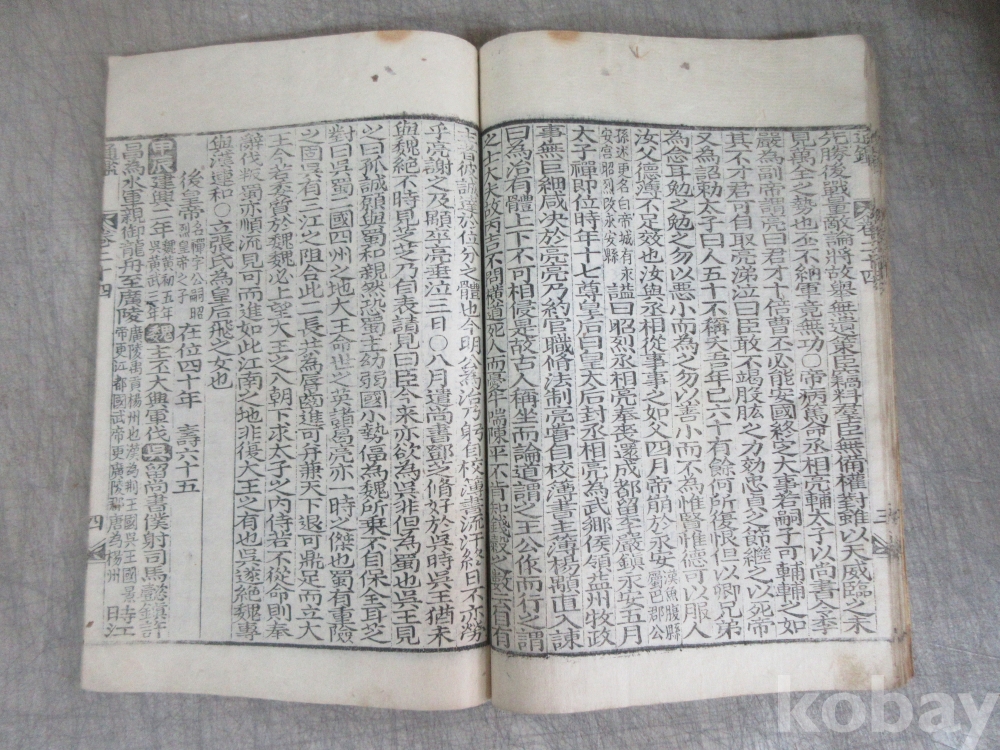 先勝後戰量敵論將故擧無遺策臣竊料羣臣無備權對雖以天威臨之未
見萬全之勢也丕不納軍竟無功○帝病篤命丞相亮輔太子以尚書令李
嚴爲副帝謂亮曰君才十倍曹丕必能安國終定大事若嗣子可輔輔之如
其不才君可自取亮涕泣曰臣敢不竭股肱之力効忠貞之節繼之以死帝
又爲詔勅太子曰人五十不稱夭吾年已六十有餘何所復恨但以卿兄弟
爲念耳勉之勉之勿以惡小而爲之勿以善小而不爲惟賢惟德可以服人
汝父德薄不足效也汝與丞相從事事之如父四月帝崩於永安漢魚腹縣蜀巴郡公
孫述更名白帝城有永安宮昭烈改永安縣諡曰昭烈丞相亮奉喪還成都留李嚴鎭永安五月
太子禪即位時年十七尊皇后曰皇太后封丞相亮爲武鄕侯領益州牧政
事無巨細咸决於亮亮乃約官職脩法制亮嘗自校簿書主簿楊顒直入諫
曰爲治有體上下不可相侵是故古人稱坐而論道謂之王公作而行之謂
之士大夫故丙吉不問橫道死人而憂牛喘陳平不肯知錢穀之數云自有
主者彼誠達於位分之體也今明公爲治乃躬自校簿書流汗終日不亦勞
乎亮謝之及顒卒亮垂泣三日○八月遣尚書鄧芝脩好於吳時吳王猶未
與魏絕不時見芝芝乃自表請見曰臣今來亦欲爲吳非但爲蜀也吳王見
之曰孤誠願與蜀和親然恐蜀主幼弱國小勢偪爲魏所乘不自保全耳芝
對曰吳蜀二國四州之地大王命世之英諸葛亮亦一時之傑也蜀有重險
之固吳有三江之阻合此二長共爲脣齒進可并兼天下退可鼎足而立大
王今若委質於魏魏必上望大王之入朝下求太子之內侍若不從命則奉
辭伐叛蜀亦順流見可而進如此江南之地非復大王之有也吳遂絕魏專
與漢連和○立張氏爲皇后飛之女也
後皇帝名禪字公嗣昭烈皇帝之子在位四十年 壽六十五
甲辰建興二年魏黃初五年吳黃武三年魏主丕大興軍伐吳留尚書僕射司馬懿鎭許
昌爲水軍親御龍舟至廣陵廣陵禹貢楊州也漢爲荊王國吳王國景帝更江都國武帝更廣陵郡唐爲楊州時江
卷二十四
四
三
kobay